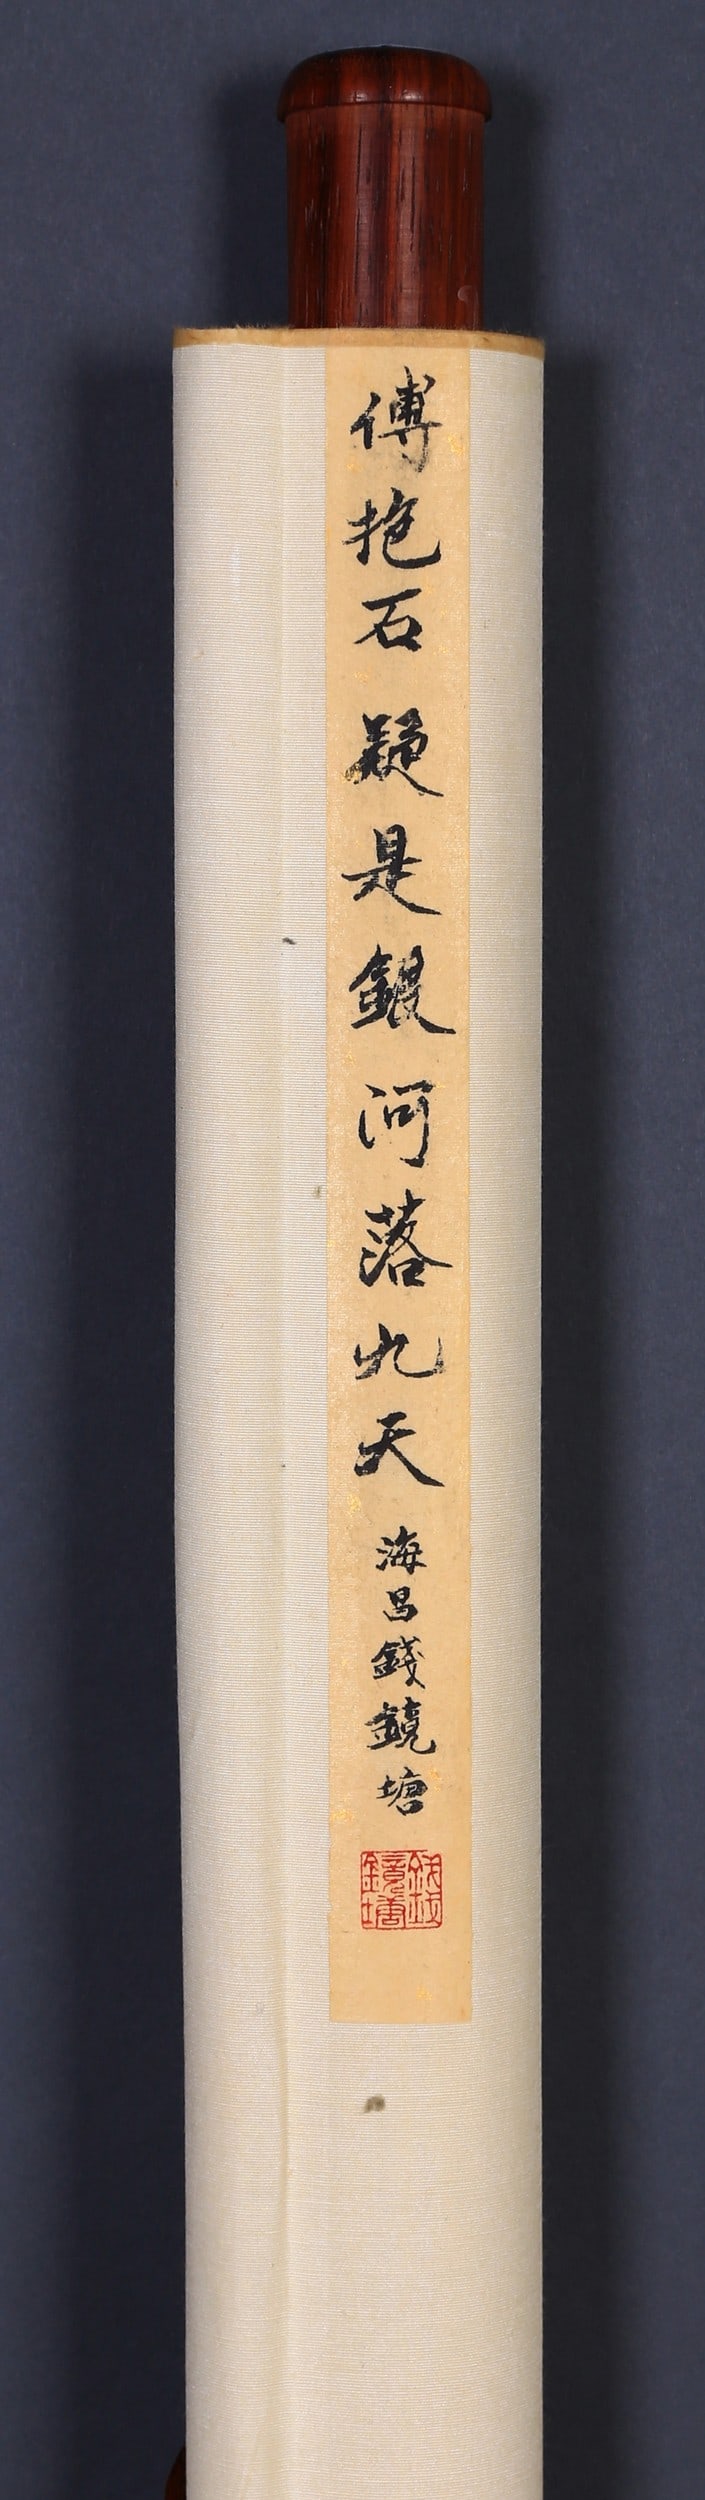 傅抱石 疑是銀河落九天 海昌錢鏡塘
錢鏡塘